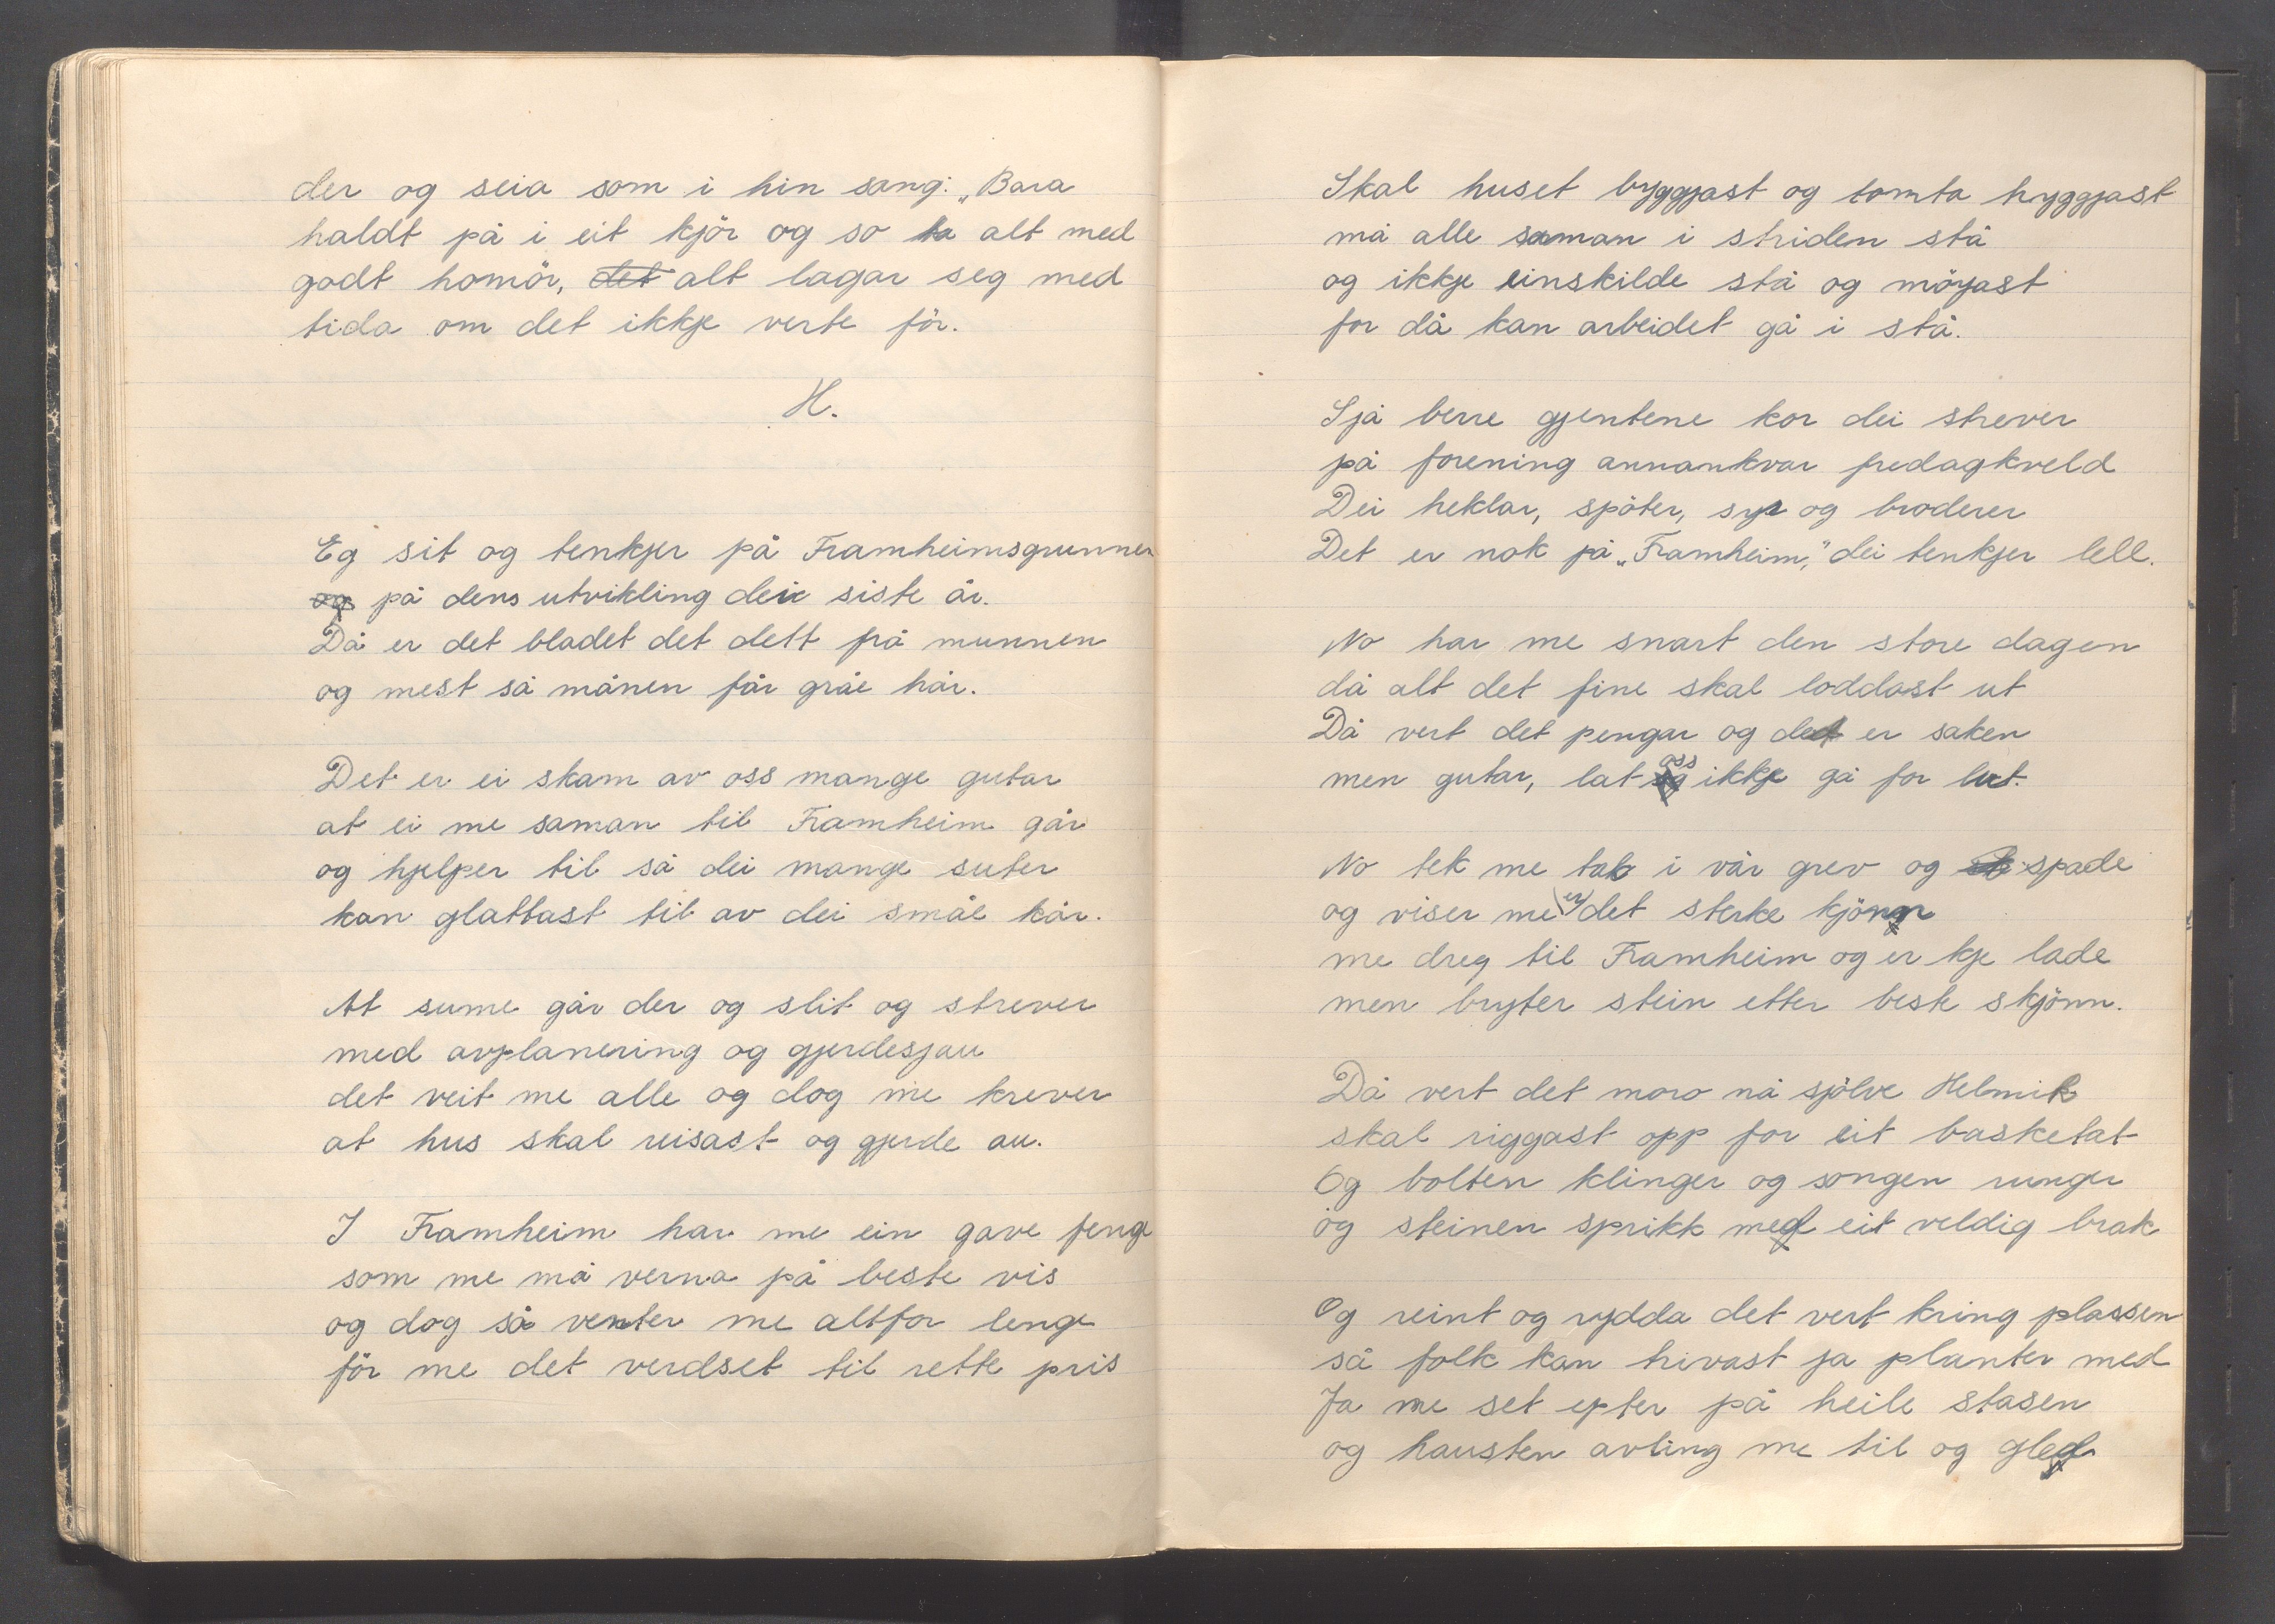 der og seia som i hin sang: „Bara
haldt på i eit kjör og so ta alt med
godt homör, det alt lagar seg med
tida om det ikkje verte för.
H.
Eg sit og tenkjer på Framheimsgrunnen
og på dens utvikling dei siste år.
Då er det bladet det dett frå munnen
og mest så månen får gråe hår.
Det er ei skam av oss mange gutar
at ei me saman til Framheim går
og hjelper til så dei mange suter
kan glattast til av dei småe kår.
At sume går der og slit og strever
med avplanering og gjerdesjau
det veit me alle og dog me krever
at hus skal reisast og gjerde au.
I Framheim har me ein gave fenge
som me må verna på beste vis
og dog så venter me altfor lenge
för me det verdset til rette pris
Skal huset byggjast og tomta hyggjast
må alle saman i striden stå
og ikkje einskilde stå og möyast
for då kan arbeidet gå i stå.
Sjå berre gjentene kor dei strever
på forening annankvar fredagkveld
Dei heklar, spöter, syr og broderer
Det er nok på „Framheim,” dei tenkjer lell.
No har me snart den store dagen
då alt det fine skal loddast ut
Då vert det pengar og det er saken
men gutar, lat oss ikkje gå for lut.
No tek me tak i vår grev og spade
og viser me er det sterke kjönn
me dreg til Framheim og er kje lade
men bryter stein etter beste skjönn.
Då vert det moro nå sjölve Helmik
skal riggast opp for eit basketat
Og bolten klinger og songen runger
og steinen sprikk med eit veldig brak
Og reint og rydda det vert kring plassen
så folk kan hivast ja planter med
Ja me set epter på heile stasen
og hausten avling me til og gled